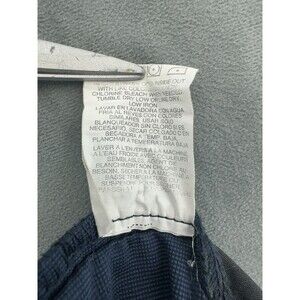 INSIDE OUT
WITH LIKE COLORS
CHLORINE BLEACH WHEN NEEDED
TUMBLE DRY LOW OR LINE DRY
LOW IRON
LAVAR EN LAVADORA CON AGUA
FRIA AL REVES CON COLORES
SIMILARES, USAR SOLO
BLANQUEADOR SIN CLORO SI ES
NECESARIO, SECAR COLGADO O
SECAR A TEMP. BAJA,
PLANCHAR A TEMP. BAJA
LAVER A L'ENVERS A LA MACHINE
A L'EAU FROIDE AVEC COULEURS
SEMBLABLES,
BLANCHIMENT NON CHLORE AU
BESOIN, SECHAGE PAR CULBUTAGE
BASSE TEMPERATURE OU
SUSPENDRE POUR SECHER
A BASSE